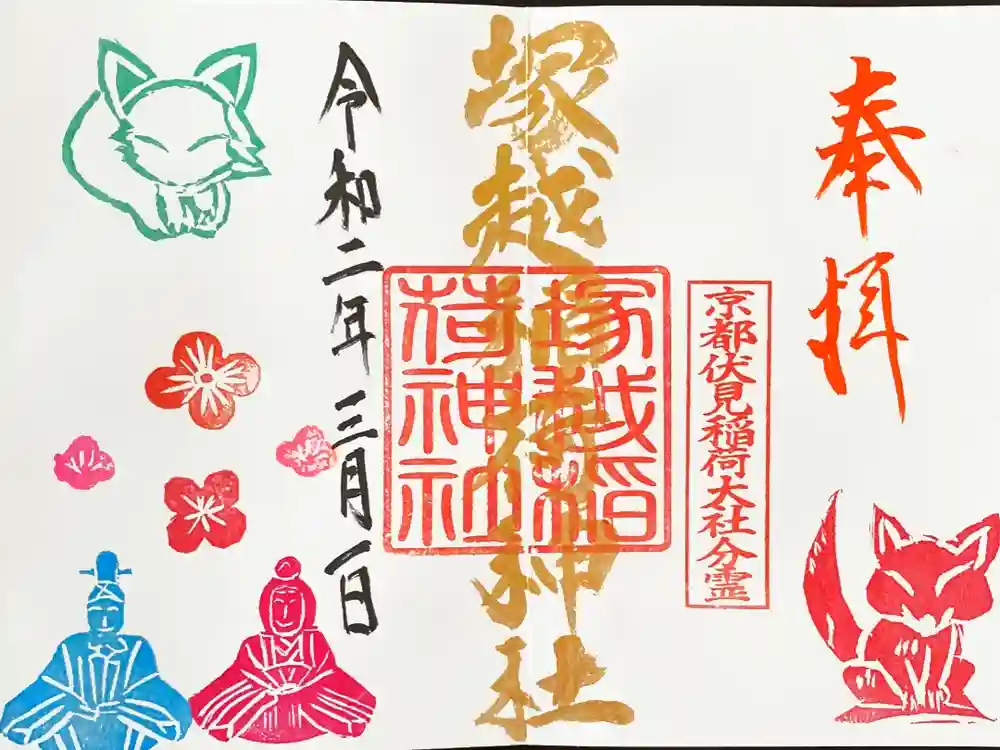 奉拝
京都伏見稲荷大社分霊
塚越稲荷神社
塚越稲
荷神社
令和二年三月一日